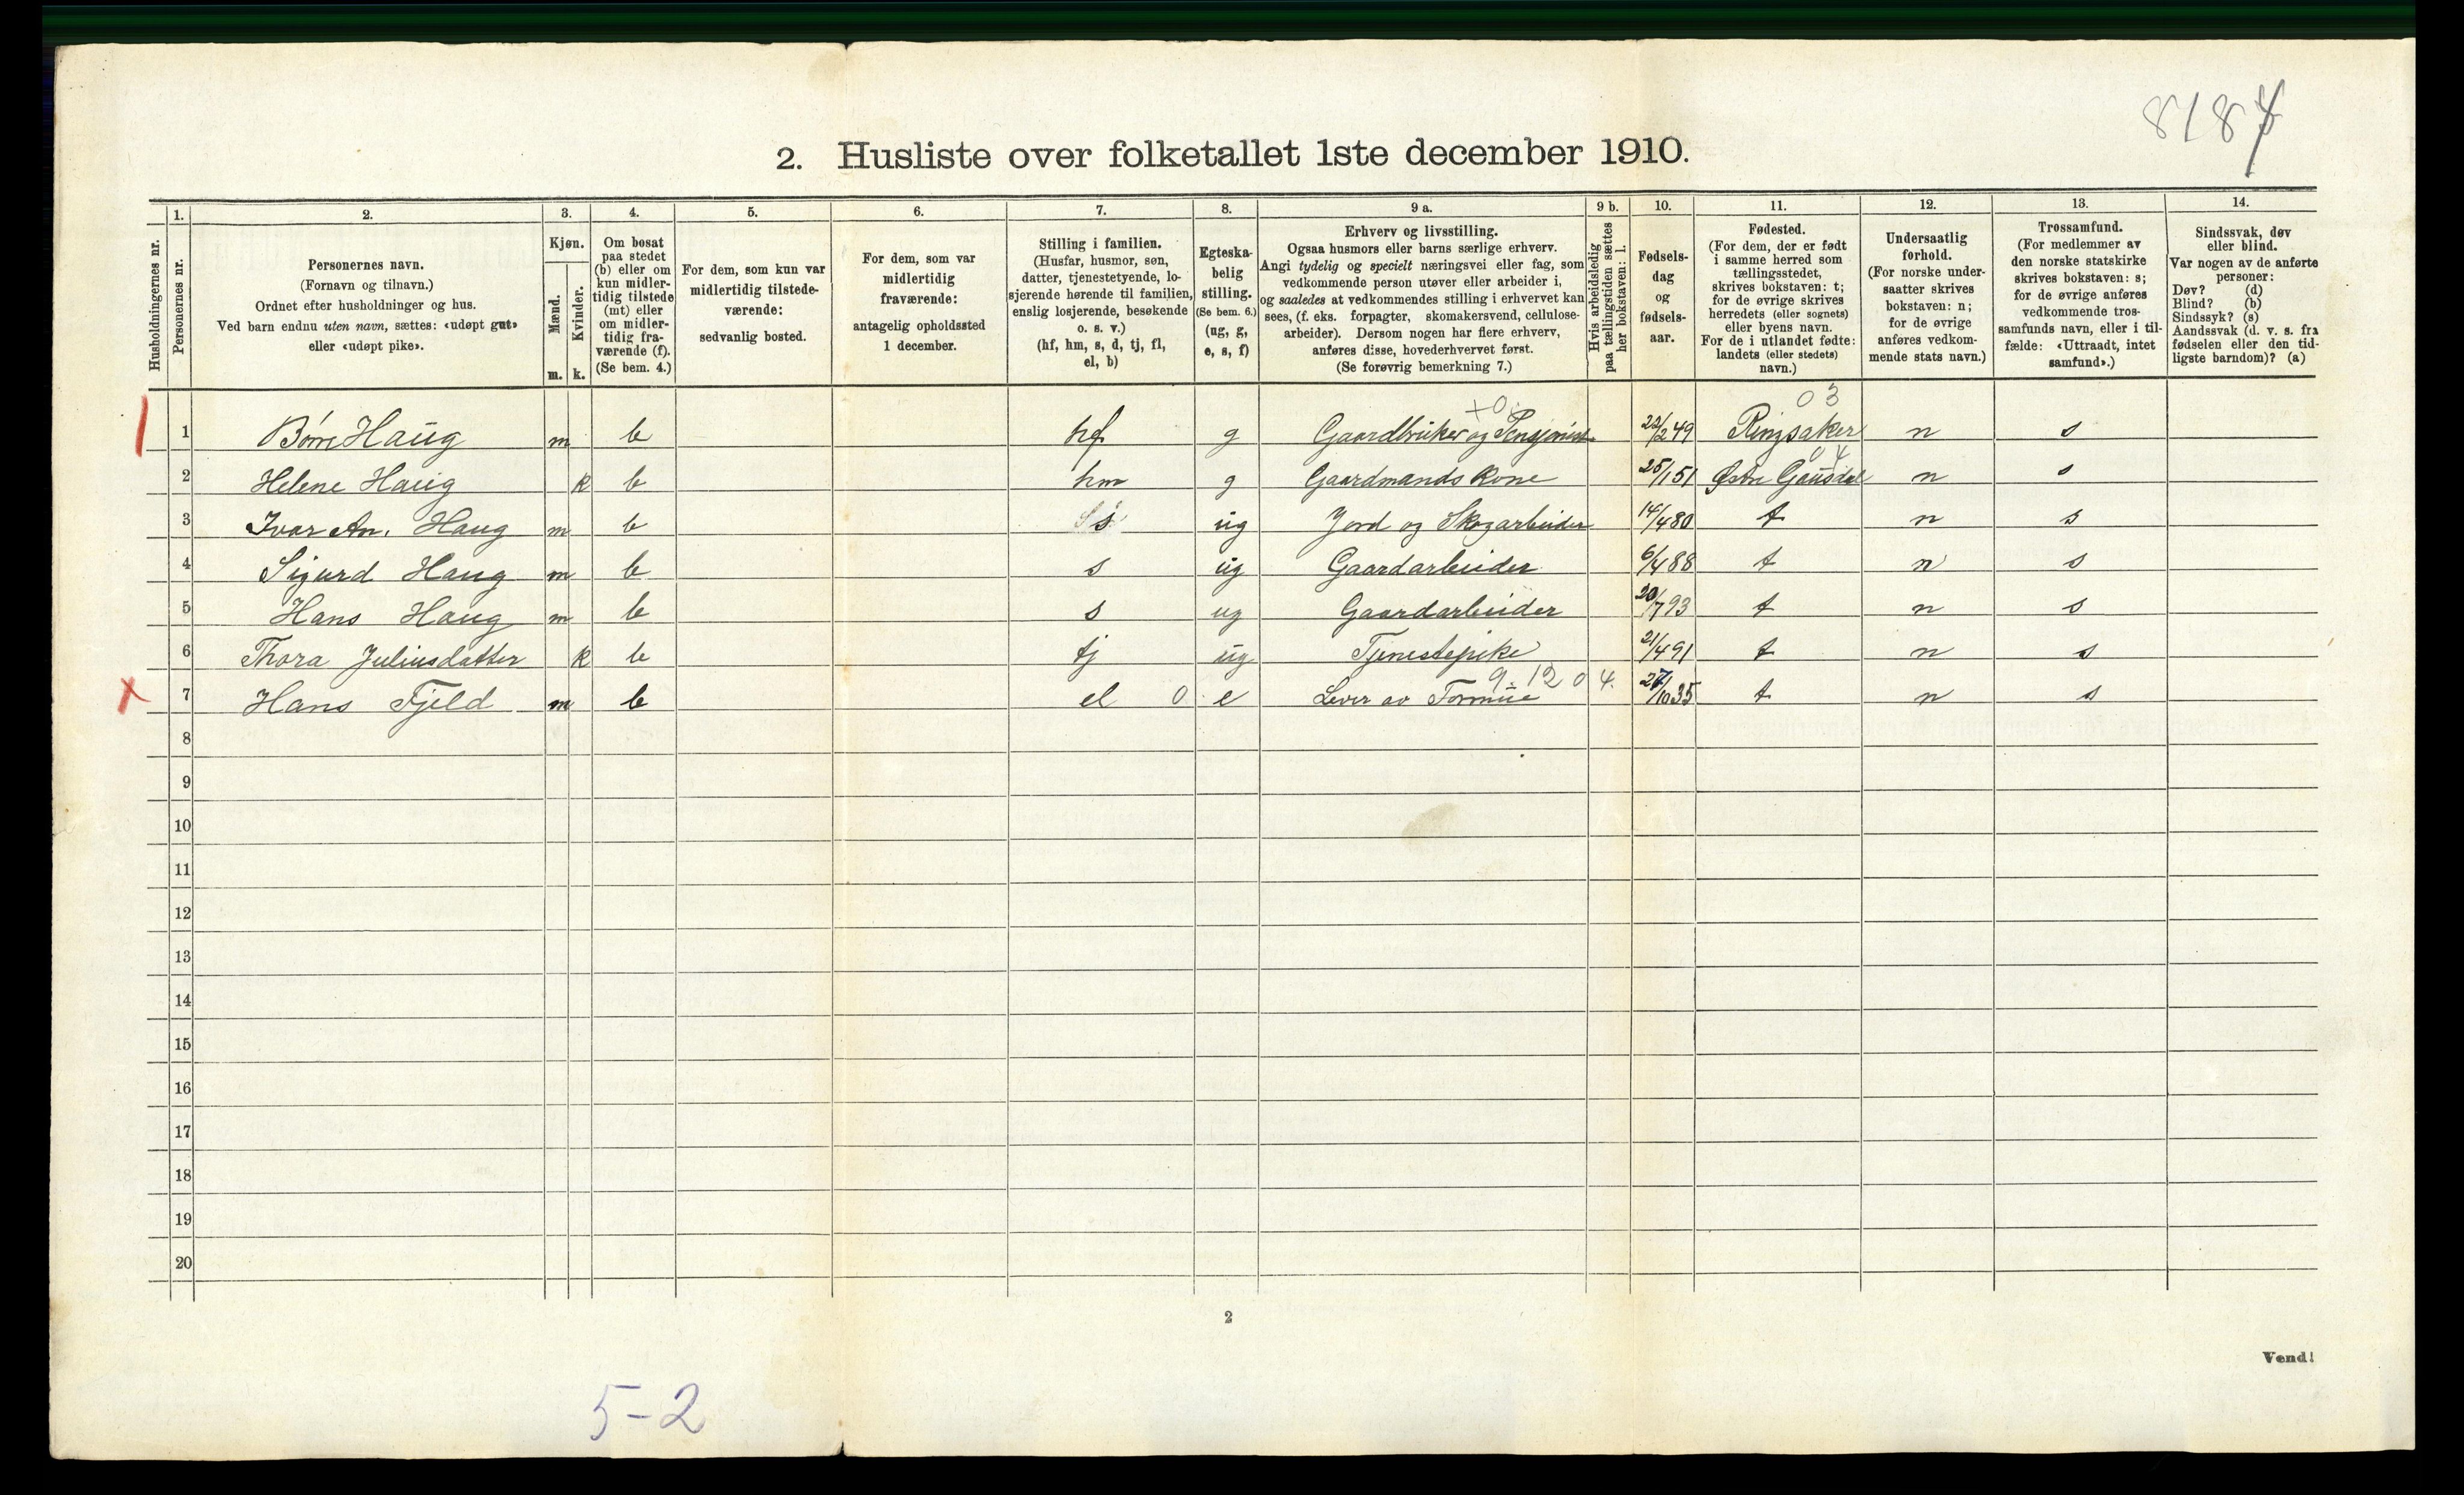 8184
2. Husliste over folketallet 1ste december 1910.
Husholdningernes nr.
1.
Personernes nr.
2.
Personernes navn.
(Fornavn og tilnavn.)
Ordnet efter husholdninger og hus.
Ved barn endnu uten navn, sættes: «udøpt gut»
eller «udøpt pike».
3.
Kjøn.
Mænd.
Kvinder.
m. k.
4.
Om bosat
paa stedet
(b) eller om
kun midler-
tidig tilstede
(mt) eller
om midler-
tidig fra-
værende (f).
(Se bem. 4.)
5.
For dem, som kun var
midlertidig tilstede-
værende:
sedvanlig bosted.
6.
For dem, som var
midlertidig
fraværende:
antagelig opholdssted
1 december.
7.
Stilling i familien.
(Husfar, husmor, søn,
datter, tjenestetyende, lo-
sjerende hørende til familien,
enslig losjerende, besøkende
o. s. v.)
(hf, hm, s, d, tj, fl,
el, b)
8.
Egteska-
belig
stilling.
(Se bem. 6.)
(ug, g,
e, s, f)
9 a.
Erhverv og livsstilling.
Ogsaa husmors eller barns særlige erhverv.
Angi tydelig og specielt næringsvei eller fag, som
vedkommende person utøver eller arbeider i,
og saaledes at vedkommendes stilling i erhvervet kan
sees, (f. eks. forpagter, skomakersvend, cellulose-
arbeider). Dersom nogen har flere erhverv,
anføres disse, hovederhvervet først.
(Se forøvrig bemerkning 7.)
9 b.
Hvis arbeidsledig
paa tællingstiden sættes
her bokstaven: l.
10.
Fødsels-
dag
og
fødsels-
aar.
11.
Fødested.
(For dem, der er født
i samme herred som
tællingsstedet,
skrives bokstaven: t;
for de øvrige skrives
herredets (eller sognets)
eller byens navn.
For de i utlandet fødte:
landets (eller stedets)
navn.)
12.
Undersaatlig
forhold.
(For norske under-
saatter skrives
bokstaven: n;
for de øvrige
anføres vedkom-
mende stats navn.)
13.
Trossamfund.
(For medlemmer av
den norske statskirke
skrives bokstaven: s;
for de øvrige anføres
vedkommende tros-
samfunds navn, eller i til-
fælde: «Uttraadt, intet
samfund».)
14.
Sindssvak, døv
eller blind.
Var nogen av de anførte
personer:
Døv? (d)
Blind? (b)
Sindssyk? (s)
Aandssvak (d. v. s. fra
fødselen eller den tid-
ligste barndom)? (a)
+0 03
1 Børre Haug m b hf g Gaardbruker og Pensjonist 22/2 49 Ringsaker n s
04
2 Helene Haug k b hm g Gaardmands kone 25/1 51 Østre Gausdal n s
3 Ivar An. Haug m b s ug Jord og Skogarbeider 14/4 80 t n s
4 Sigurd Haug m b s ug Gaardarbeider 6/4 88 t n s
5 Hans Haug m b s ug Gaardarbeider 20/7 93 t n s
6 Thora Juliusdatter k b tj ug Tjenestepike 21/4 91 t n s
9.12 0 4.
x 7 Hans Fjeld m b el 0 e Lever av Formue 27/10 35 t n s
8
9
10
11
12
13
14
15
16
17
18
19
20
2
Vend!
5-2